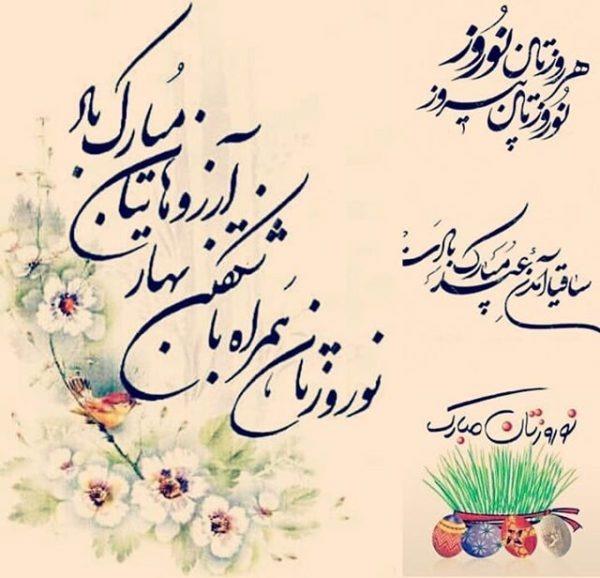 هر روزتان نوروز
نوروزتان پیروز
ساقیا آمدن عید مبارک بادت
نوروزتان مبارک
مبارک باد
آرزوهایتان
شکفتن بهار
نوروزتان همراه با